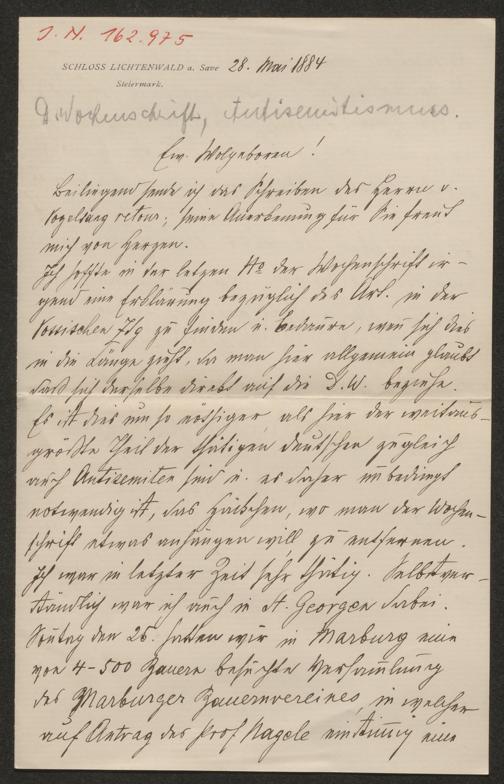 J. N. 162.975
SCHLOSS LICHTENWALD a. Save 28. Mai 1884
Steiermark.
D. Wochenschrift, Antisemitismus.
Ew. Wolgeboren!
Beiliegend sende ich das Schreiben des Herrn v.
Vogelsang retour; seine Anerkennung für Sie freut
mich von Herzen.
Ich hoffte in der letzen No der Wochenschrift ir-
gend eine Erklärung bezüglich des Art. in der
Vossischen Ztg zu finden u. bedaure, wen sich dies
in die Länge zieht, da man hier allgemein glaubt
daß sich derselbe direkt auf die D. W. beziehe.
Es ist dies um so nöthiger, als hier der weitaus-
größte Theil der thätigen deutschen zugleich
auch Antisemiten sind u. es daher unbedingt
notwendig ist, das Häckchen, wo man der Wochen-
schrift etwas anhängen will zu entfernen.
Ich war in letzter Zeit sehr thätig. Selbstver-
ständlich war ich auch in St. Georgen dabei.
Sontag den 25. hatten wir in Marburg eine
von 4-500 Bauern besuchte Versamlung
des Marburger Bauernvereines, in welcher
auf Antrag des Prof Nagele einstimig eine